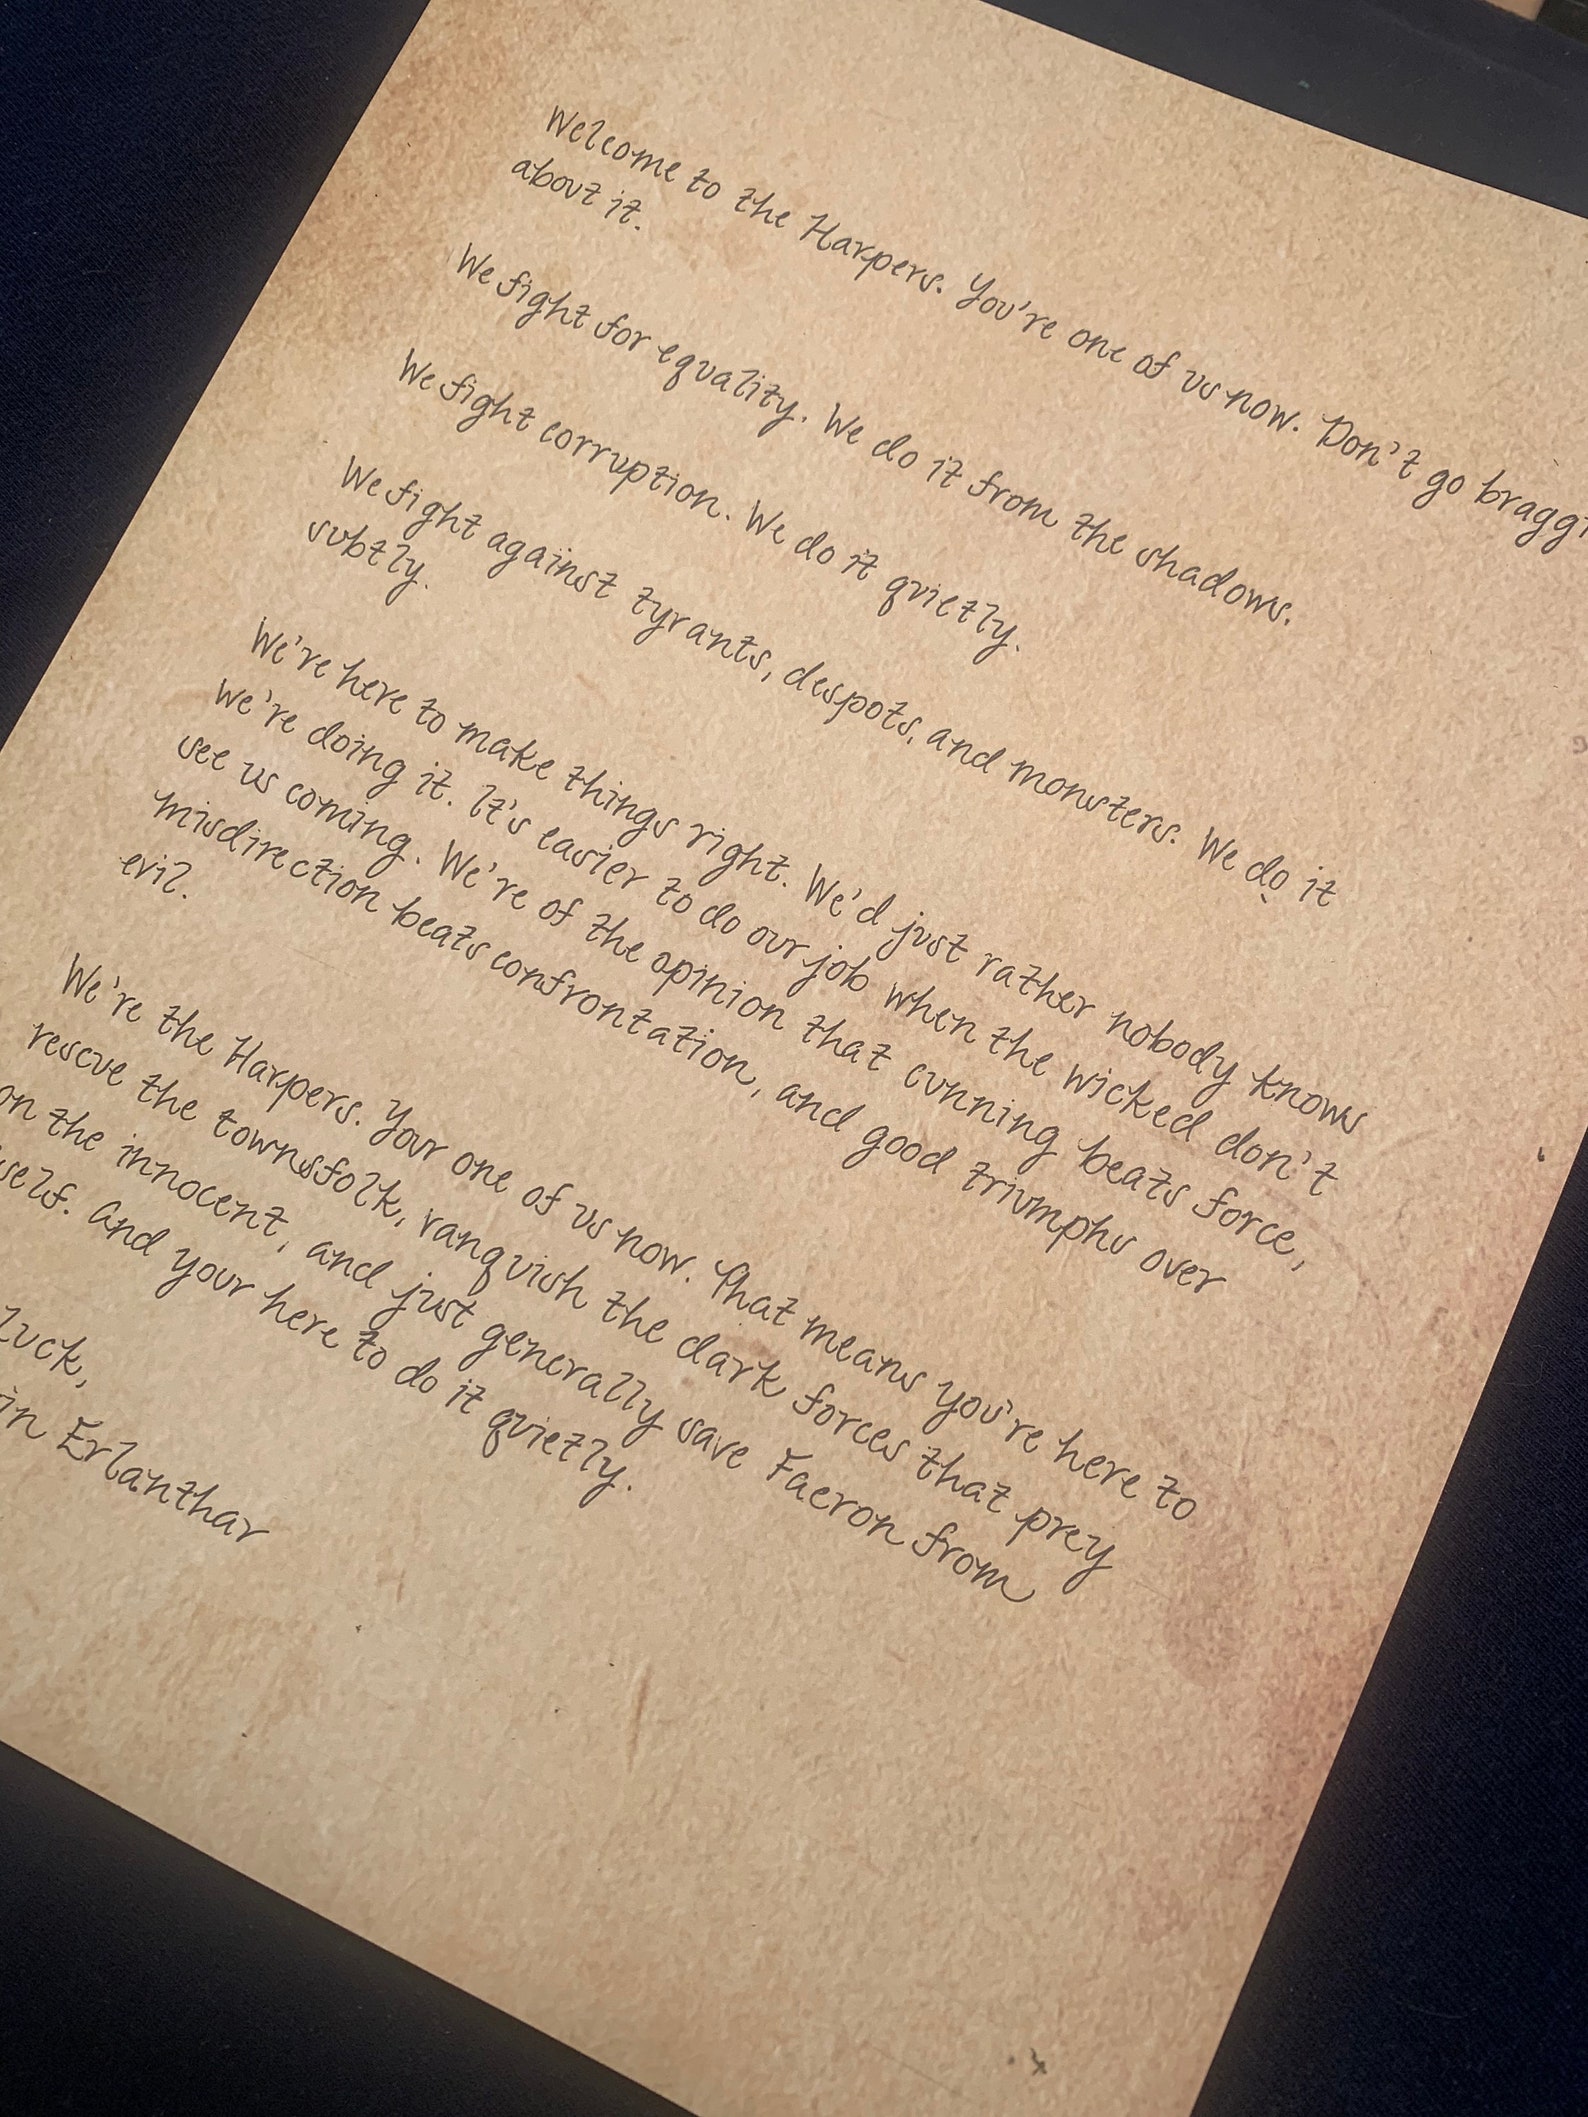 Welcome to the Harpers. You're one of us now. Don't go braggi
about it.
We fight for equality. We do it from the shadows.
We fight corruption. We do it quietly.
We fight against tyrants, despots, and monsters. We do it
subtly.
We're here to make things right. We'd just rather nobody knows
we're doing it. It's easier to do our job when the wicked don't
see us coming. We're of the opinion that cunning beats force,
misdirection beats confrontation, and good triumphs over
evil.
We're the Harpers. Your one of us now. That means you're here to
rescue the townsfolk, vanquish the dark forces that prey
on the innocent, and just generally save Faeron from
self. And your here to do it quietly.
luck,
in Erlanthar